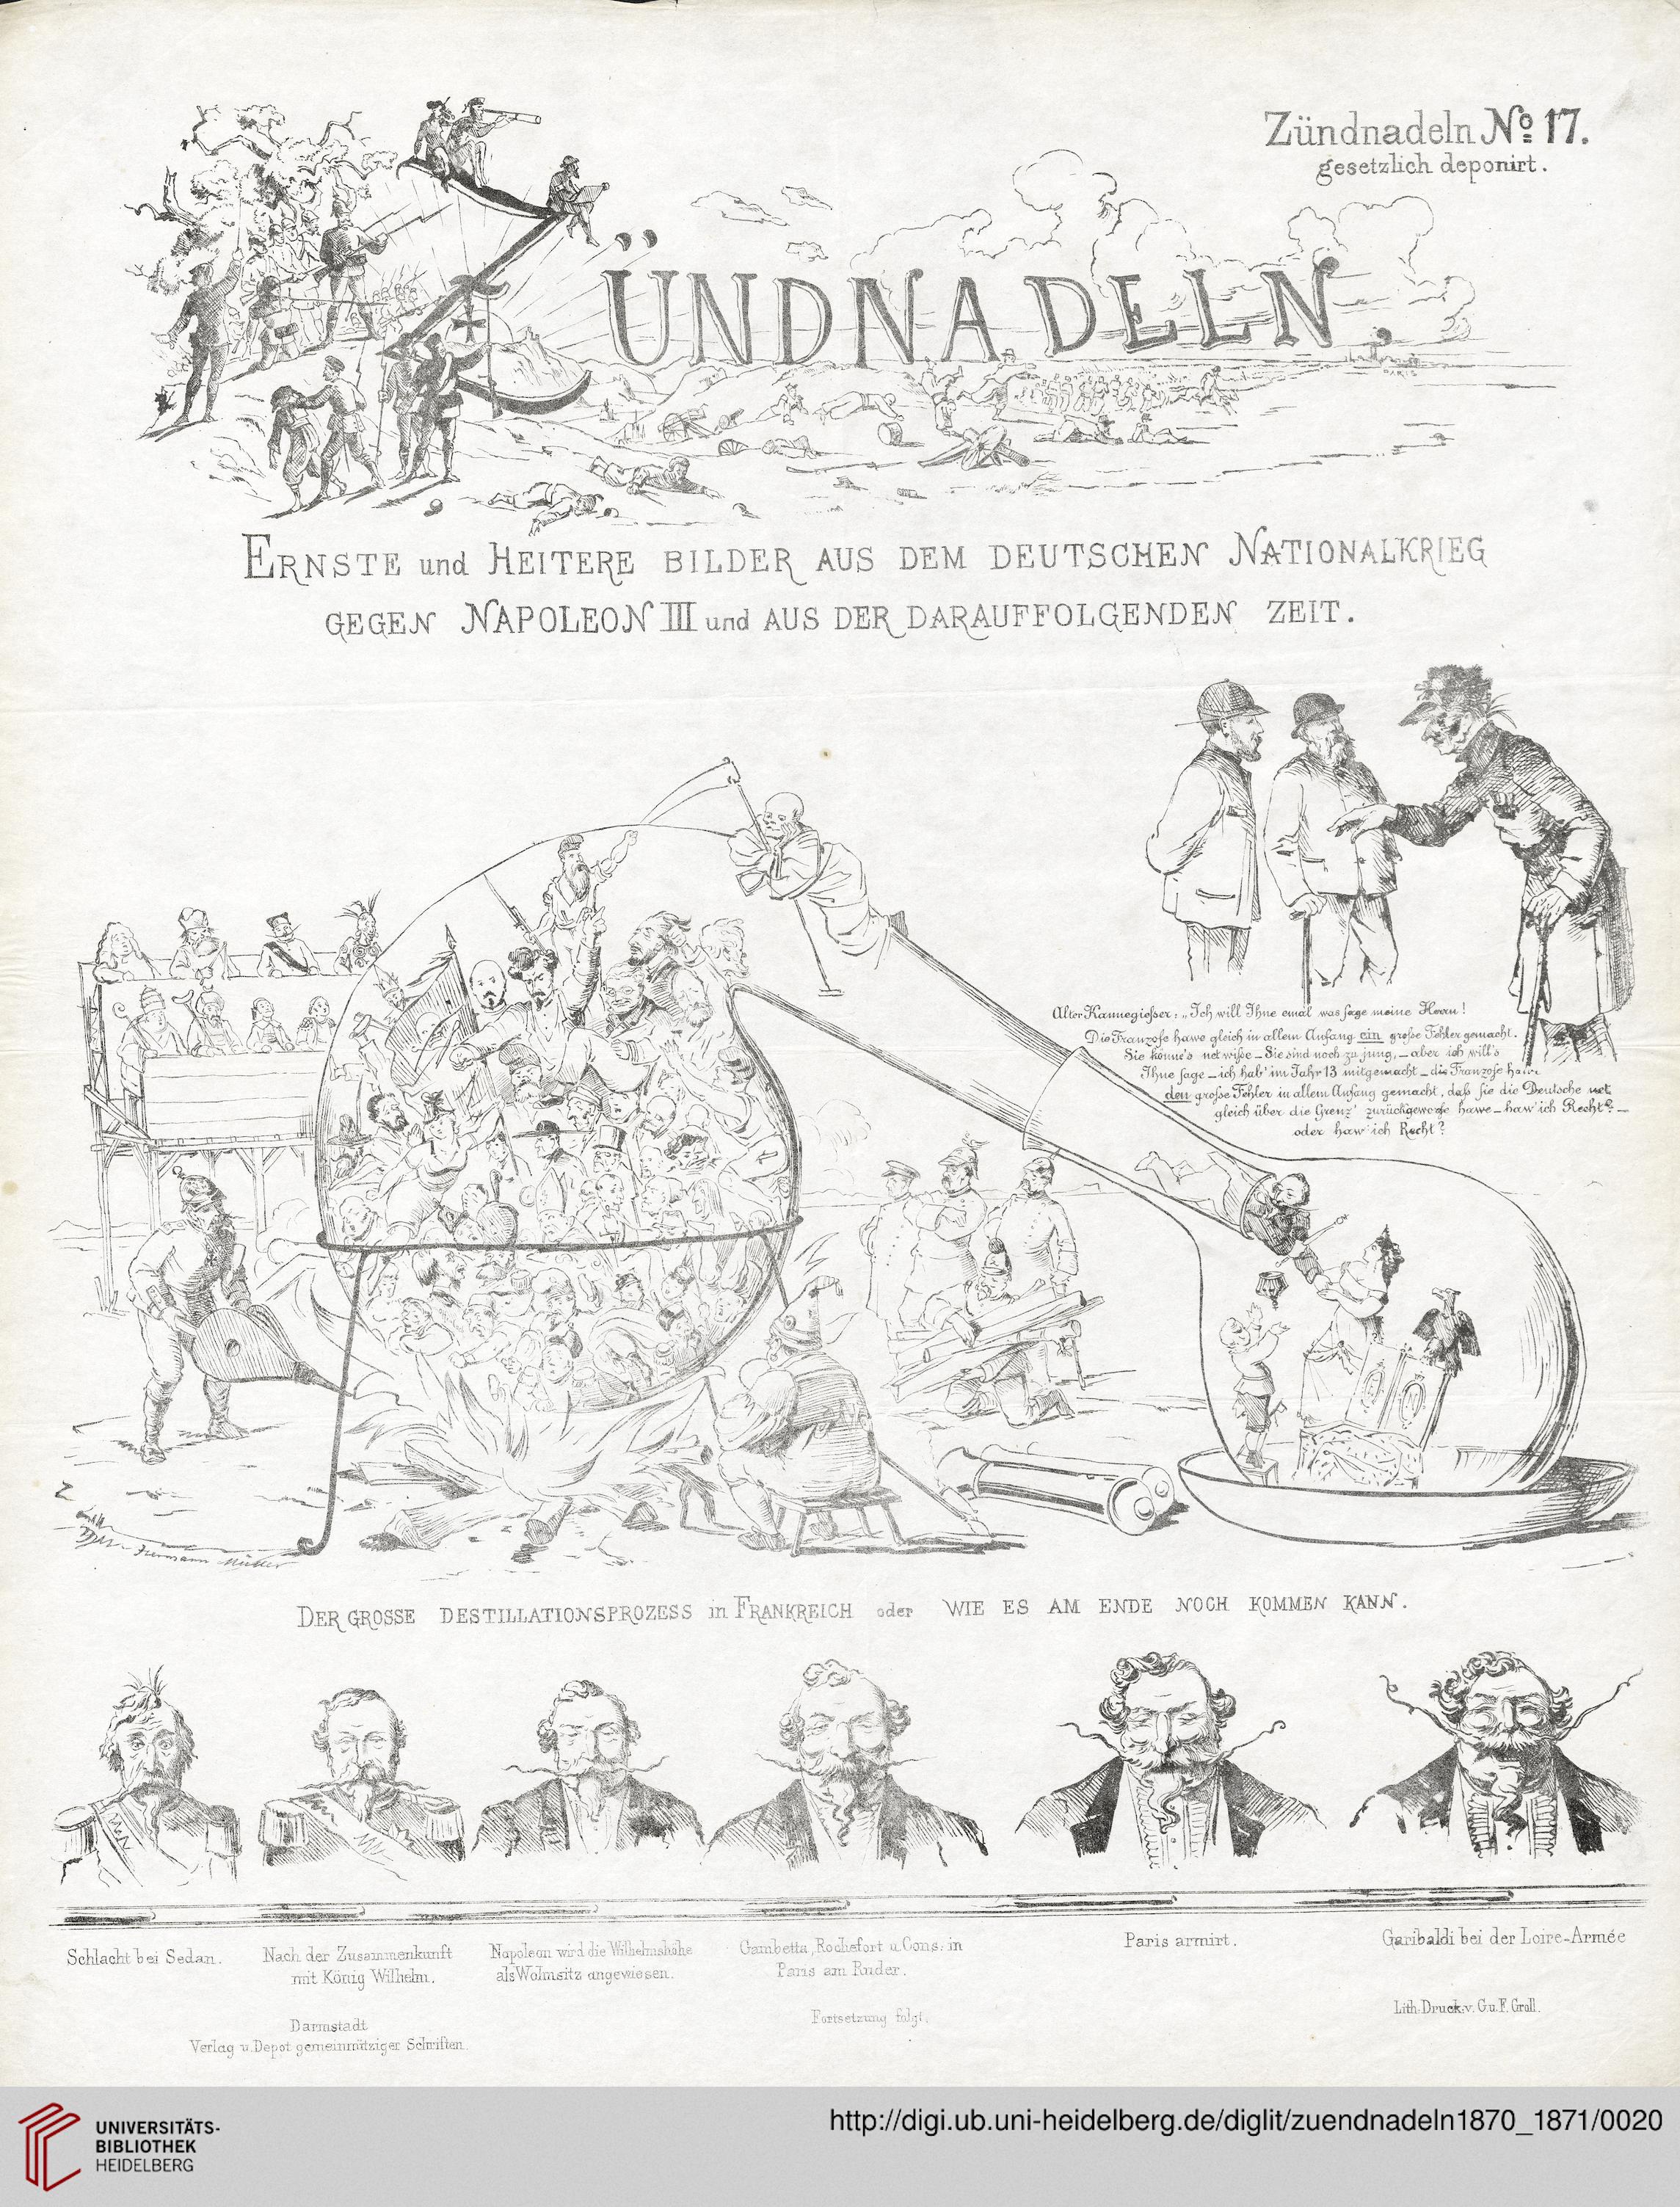 Zündnadeln No 17.
gesetzlich deponirt.
ZÜNDNADELN,
PARIS
ERNSTE und HEITERE BILDER AUS DEM DEUTSCHEN NATIONALKRIEG
GEGEN NAPOLEON III und AUS DER DARAUFFOLGENDEN ZEIT.
Alter Kannegießer: „Ich will Ihne emal was sage meine Herrn!
Die Franzose hawe gleich in allem Anfang ein große Fehler gemacht.
Sie könne's net wiße – Sie sind noch zu jung, – aber ich will's
Ihne sage – ich hab' im Jahr 13 mitgemacht – die Franzose hawe
den große Fehler in allem Anfang gemacht, daß sie die Deutsche net
gleich über die Grenz' zurückgeworfe hawe – haw' ich Recht? –
oder haw' ich Recht?
Hermann Müller
DER GROSSE DESTILLATIONSPROZESS in FRANKREICH oder WIE ES AM ENDE NOCH KOMMEN KANN.
Schlacht bei Sedan.
Nach der Zusammenkunft
mit König Wilhelm.
Napoleon wird die Wilhelmshöhe
als Wohnsitz angewiesen.
Gambetta, Rochefort u. Cons. in
Paris am Ruder.
Paris armirt.
Garibaldi bei der Loire-Armée
Fortsetzung folgt.
Lith. Druck v. G. u. F. Groll.
Darmstadt
Verlag u. Depot gemeinnütziger Schriften.
UNIVERSITÄTS-
BIBLIOTHEK
HEIDELBERG
http://digi.ub.uni-heidelberg.de/diglit/zuendnadeln1870_1871/0020